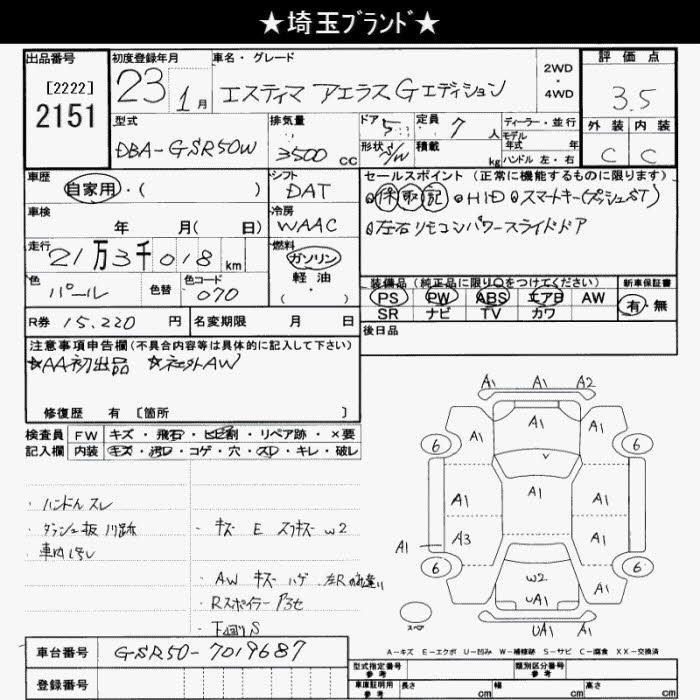 ★埼玉ブランド★
出品番号
[2222]
2151
初度登録年月
23 1月
車名・グレード
エスティマ アエラス Gエディション
2WD
・
4WD
評価点
3.5
外装 内装
C C
型式
DBA-GSR50W
排気量
3500 cc
ドア 5
形状 S/W
定員 7 人
積載 kg
ディーラー・並行
モデル
年式 年
ハンドル 左・右
車歴
自家用・( )
シフト
DAT
車検
年 月( 日)
冷房
WAAC
走行
21万3千018 km
燃料
ガソリン
軽油
( )
色
パール
色替
色コード
070
R券 15,220 円
名変期限 月 日
セールスポイント (正常に機能するものに限ります)
保 取 記 HID スマートキー(プッシュST)
左右リモコンパワースライドドア
装備品(純正品に限り○をつけてください)
PS PW ABS エアB AW
SR ナビ TV カワ
新車保証書
有・無
後日品
注意事項申告欄(不具合内容等は具体的に記入して下さい)
☆AA初出品 ☆社外AW
修復歴 有 [箇所 ]
検査員 FW キズ・飛石・ヒビ割・リペア跡・×要
記入欄 内装 キズ・汚レ・コゲ・穴・スレ・キレ・破レ
・ハンドルスレ
・ダッシュ板
・車内
・キズ E スリキズ W2
・AW キズ ハゲ
・Rスポイラー
・下廻りS
A1 A1 A2
6 A1 A1 A1 6
A1 A1 A1
A1 A3 A1
6 W2 6
A1 UA1 A1
UA1 A1
スペア
A-キズ E-エクボ U-凹み W-補修跡 S-サビ C-腐食 XX-交換済
車台番号 GSR50-7019687
登録番号
型式指定番号
参考
類別区分番号
参考
車庫証明用
参考
長さ cm 幅 cm 高さ cm